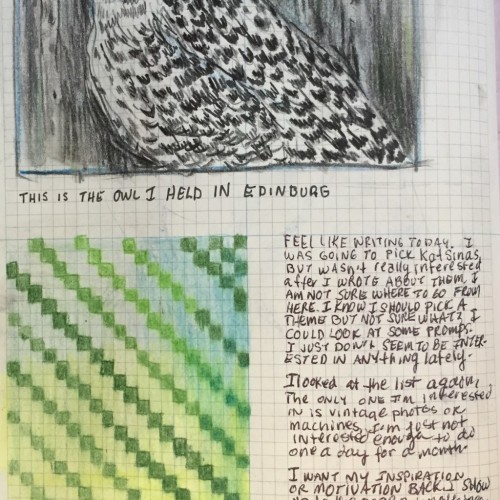 THIS IS THE OWL I HELD IN EDINBURG
FEEL LIKE WRITING TODAY. I
WAS GOING TO PICK KatSinas,
BUT WASN't really interested
after I WROTE ABOUT THEM. I
AM NOT SURE WHERE TO GO FROM
HERE. I KNOW I SHOULD PICK A
THEME BUT NOT SURE WHAT? I
COULD LOOK AT SOME PROMPS.
I JUST DON't SEEM TO BE INTER-
ESTED IN ANYthing lately.
I looked at the list again,
The ONLY ONE I'M INterested
in is vintage photos or
machines, I'm just not
interested enough to do
one a day for a month.
I WANT MY INSPIRATION
OR MOTIVATION BACK. I SHOW